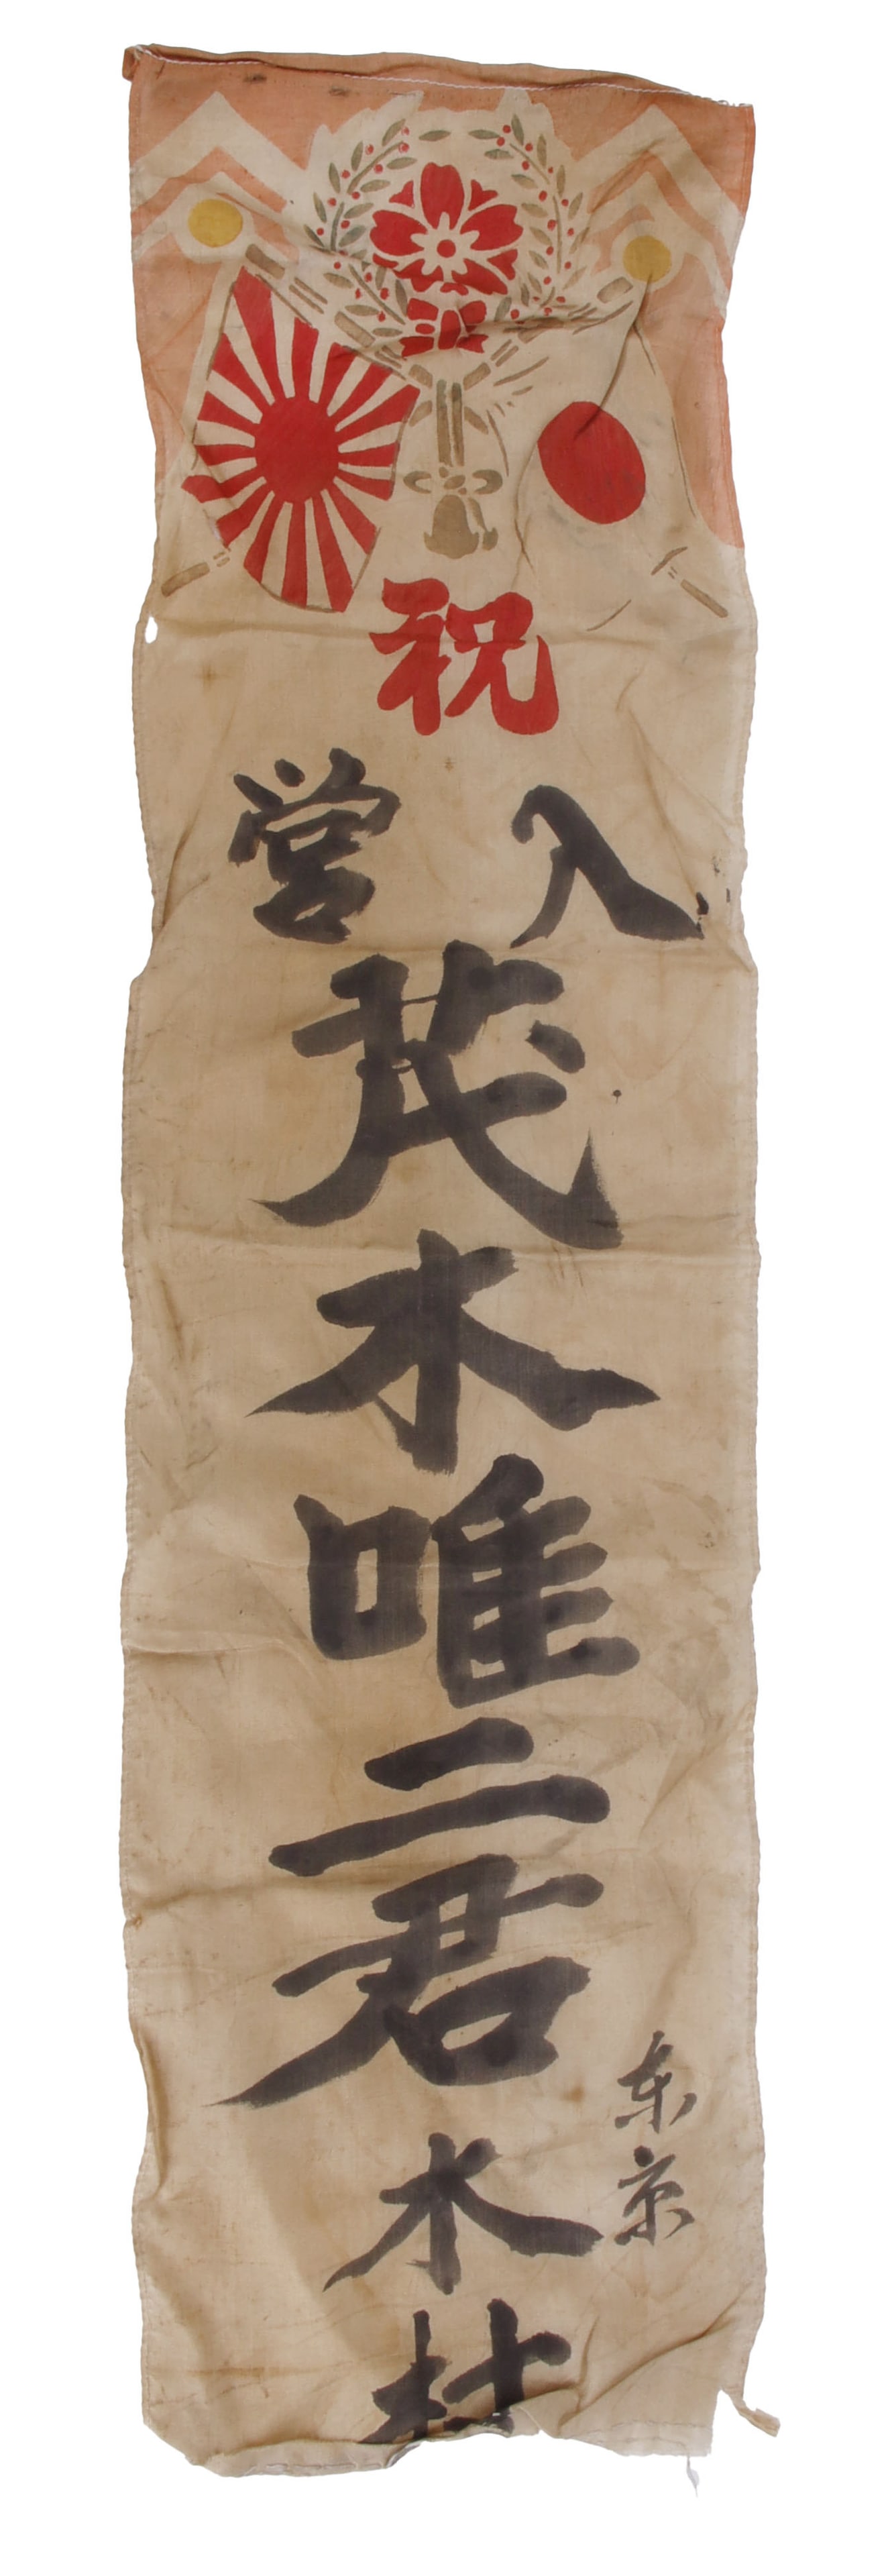 祝
入営
茂木唯二君
东京
木村